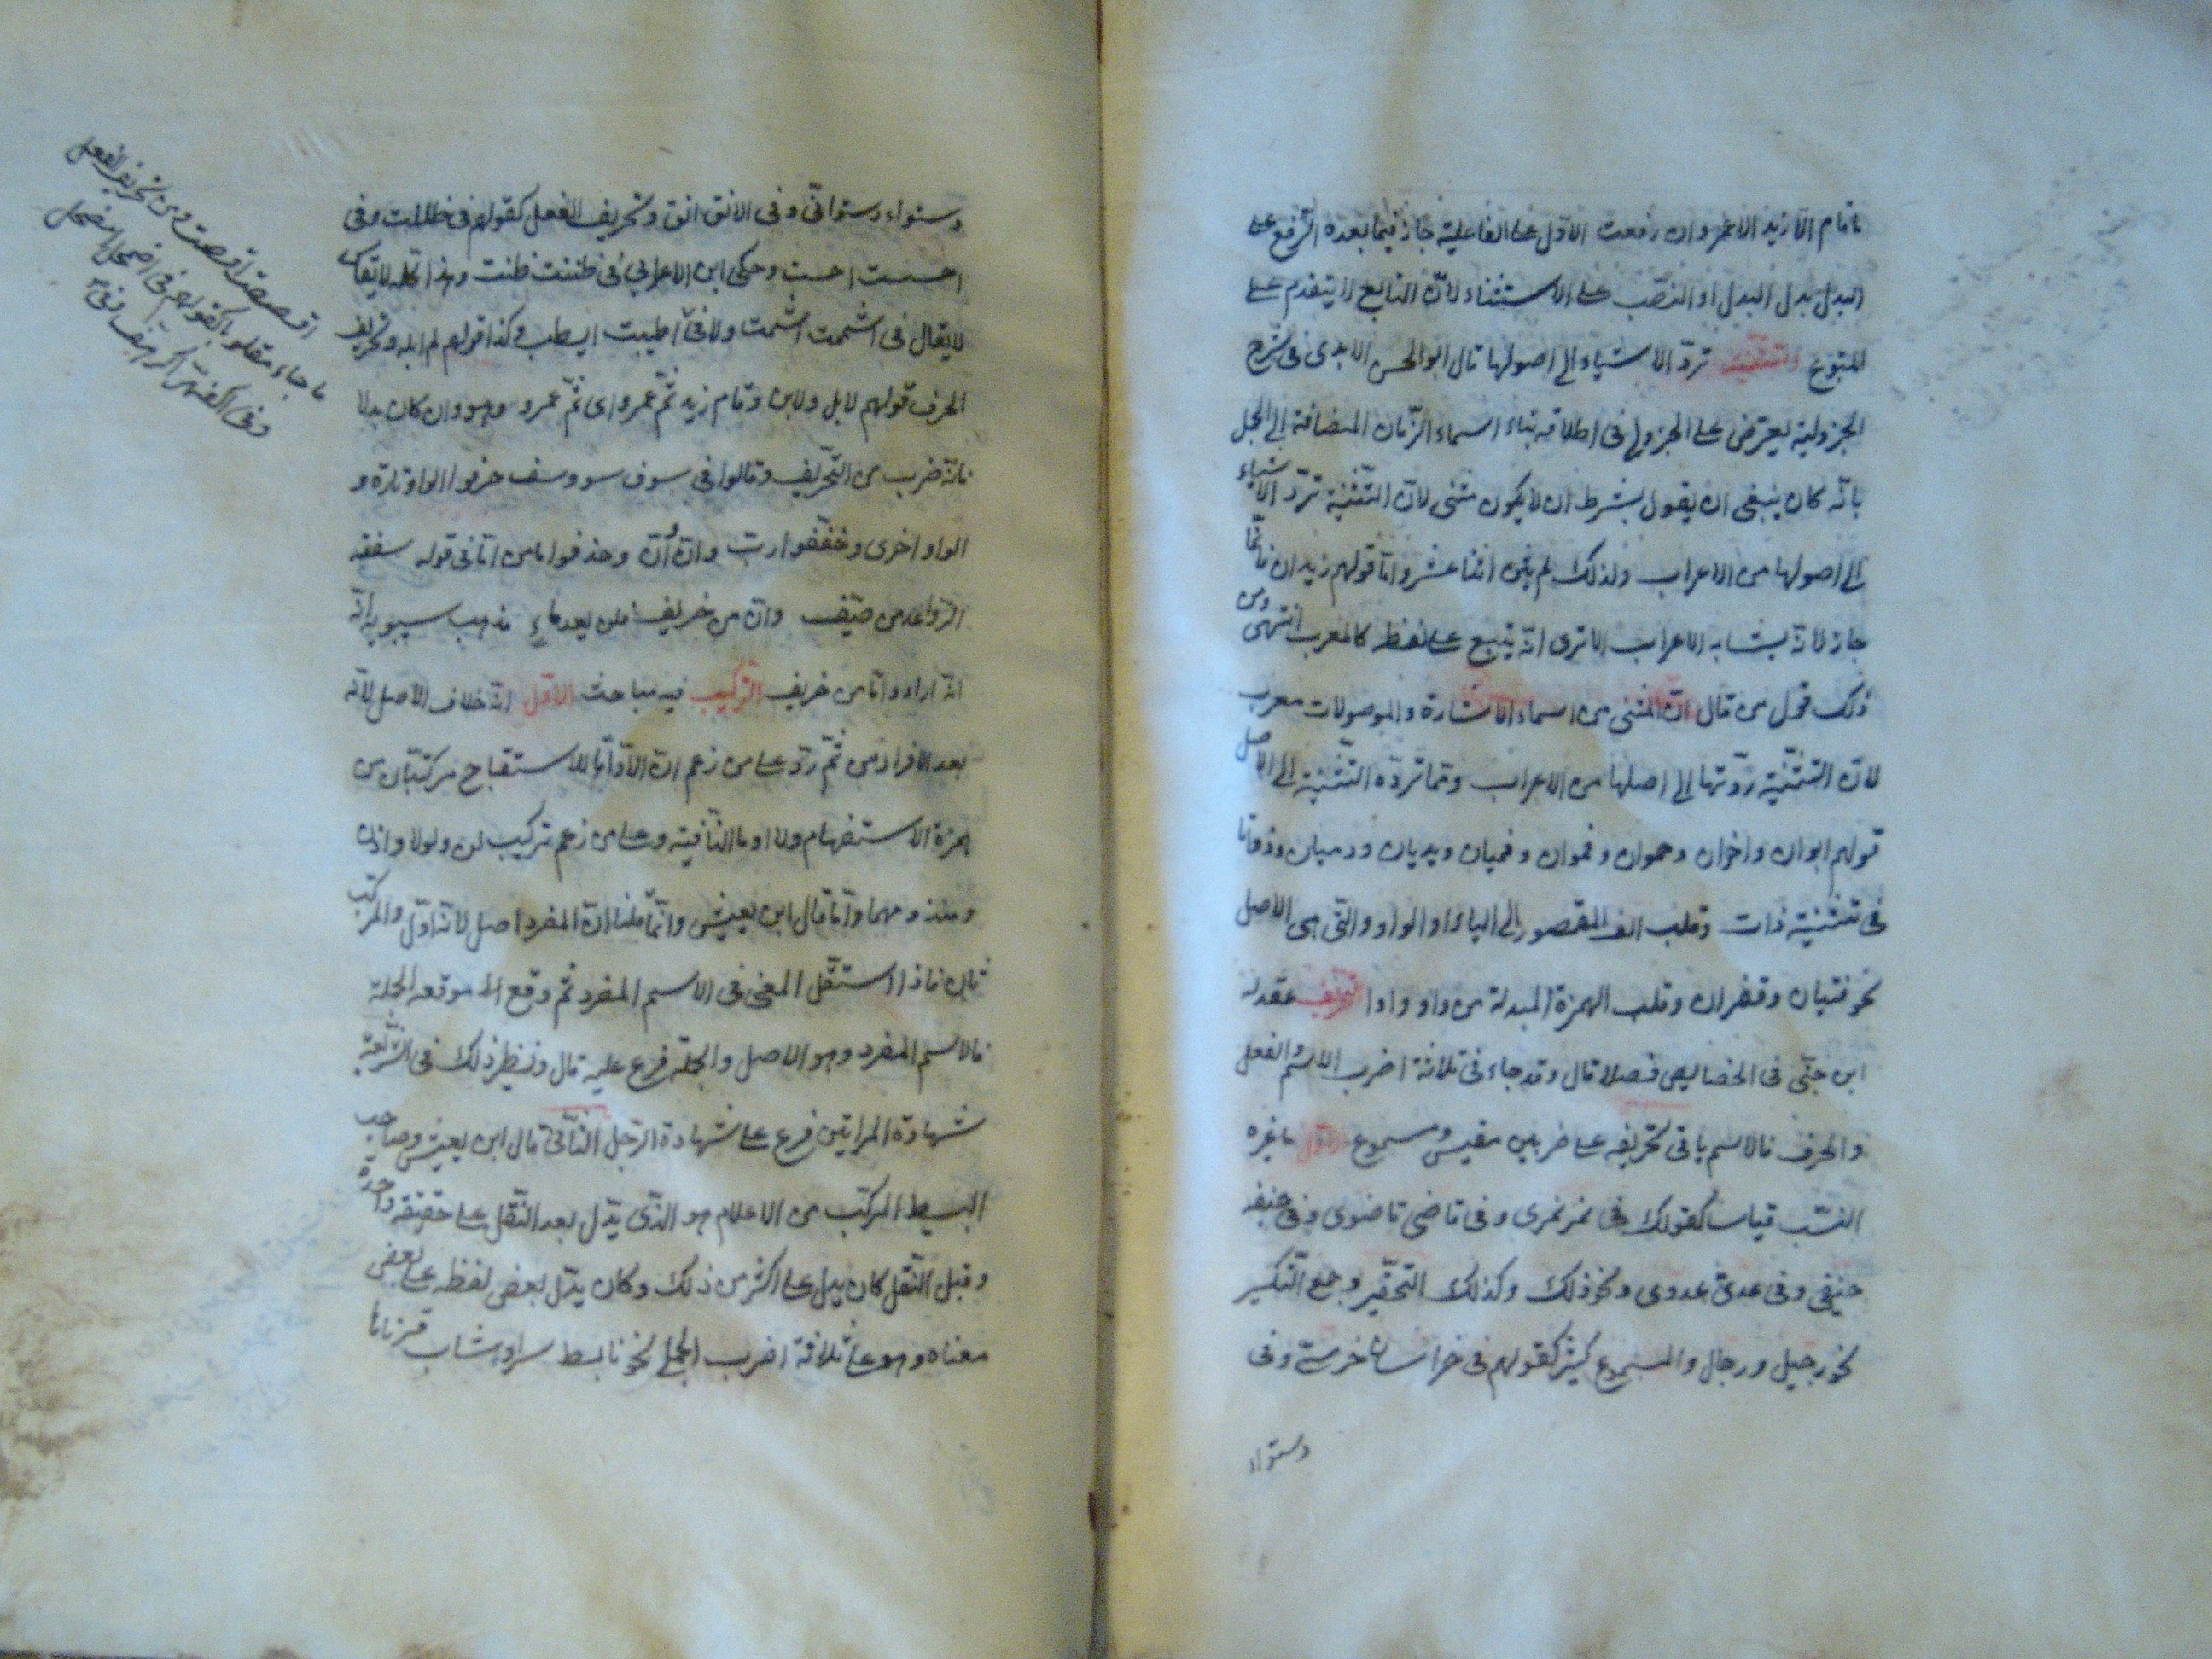 ما قام الا زيد الا عمرو ان رفعت الاول على الفاعلية جاز فيما بعده الرفع على
البدل بدل البدل او النصب على الاستثناء لان التابع لا يتقدم على
المتبوع التثنية تردّ الاشياء الى اصولها قال ابو الحسن الابدى فى شرح
الجزولية يعترض على الجزولى فى اطلاقه بناء اسماء الزمان المضافة الى الجمل
بانّه كان ينبغى ان يقول بشرط ان لا يكون مثنى لانّ التثنية تردّ الاشياء
الى اصولها من الاعراب ولذلك لم يبن اثنا عشر وامّا قولهم زيدان فانّما
جاز لانّه يشابه الاعراب الا ترى انّه يتبع على لفظه كالمعرب انتهى ومن
ذلك قول من قال انّ المثنى من اسماء الاشارة والموصولات معرب
لانّ التثنية ردّتها الى اصلها من الاعراب وممّا تردّه التثنية الى الاصل
قولهم ابوان واخوان وحموان وفموان وفميان ويديان ودميان وذواتا
فى تثنية ذات وقلب الف المقصور الى الياء او الواو والتى هى الاصل
نحو فتيان وقفوان وقلب الهمزة المبدلة من واو واوا تحريف عقد له
ابن جنّى فى الخصايص فصلا قال وقد جاء فى ثلاثة اضرب الاسم والفعل
والحرف فالاسم ياتى تحريفه على ضربين مقيس ومسموع الاول ما غيره
النسب قياسا كقولك فى نمر نمرى وفى قاضى قاضوى وفى حنيفه
حنيفى وفى عدى عدوى ونحو ذلك وكذلك التحقير وجمع التكسير
نحو رجيل ورجال والمسموع كثير كقولهم فى خراسان خرسى وفى
دستواء
دستواء دستوانى وفى الافق افق وتحريف الفعل كقولهم فى ظللت وفى
احسست احست وحكى ابن الاعرابى فى ظننت ظنت وهذا كله لا يقاس
لا يقال فى اشممت اشمت ولا فى اطيبت ايطب وكذا قولهم لم ابله وتحريف
الحرف قولهم لا بل ولا بن وقام زيد ثمّ عمرو اى فمّ عمرو وهو وان كان بدلا
فانّه ضرب من التحريف وقالوا فى سوف سو وسف حرفوا الواو تارة و
الواو اخرى وخفّفوا ربّ وانّ وأنّ وحذفوا ما من امّا فى قوله سقته
الرّواعد من صيّف وان من خريف فلن يعدما مذهب سيبويه انّه
انه اراد وامّا من خريف التركيب فيه مباحث الاوّل انّه خلاف الاصل لانّه
بعد الافراد من ثمّ ردّ على من زعم انّ الا واما للاستفتاح مركّبتان من
همزة الاستفهام ولا او ما النّافية وعلى من زعم تركيب لن ولولا واذن
ومنذ ومهما وامّا قال ابن يعيش وانّما قلنا انّ المفرد اصل لانّه اوّل والمركب
ثان فاذا استقلّ المعنى فى الاسم المفرد ثم وقع موقعه الجملة
فالاسم المفرد وهو الاصل والجملة فرع عليه قال ونظير ذلك فى الشريعة
شهادة المراتين فرع على شهادة الرّجل الثّانى قال ابن يعيش وصاحب
البسيط المركّب من الاعلام هو الذّى يدّل بعد النّقل على حقيقة واحدة
وقبل النّقل كان يدل على اكثر من ذلك وكان يدّل بعض لفظه على بعض
معناه وهو على ثلاثة اضرب الجمل نحو تابط شرا وشاب قرناها
اقصصت اقصت ومن تحريف الفعل
ما جاء مقلوبا كقولهم فى اضمحل امضحل
وفى اكفهرّ اكرهف